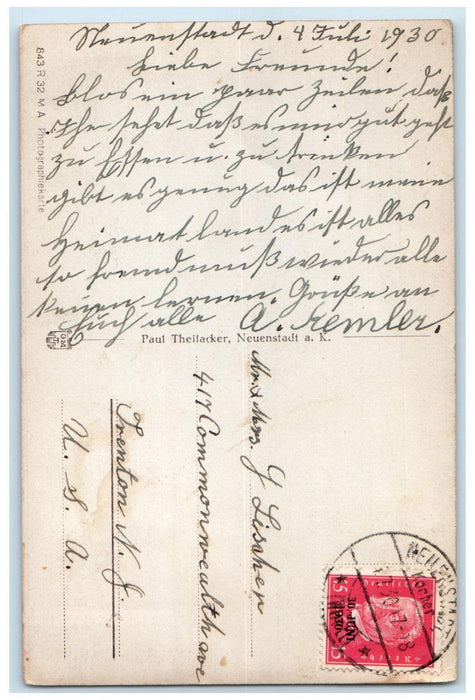 Neuenstadt d. 4 Juli 1930
Liebe Freunde!
blos ein paar Zeilen, daß
Ihr sehet daß es mir gut geht
zu Essen u. zu trinken
gibt es genug das ist meine
Heimatland es ist alles
so fremd muß wieder alle
kennen lernen. Grüße an
Euch alle A. Kemler.
843 R 32 M A Photographiekarte
Paul Theilacker, Neuenstadt a. K.
Mr & Mrs. G Lischer
417 Commonwealth ave
Trenton N. J.
U. S. A.
NEUENSTADT
Kocher
30. JUNI
1930
15
15